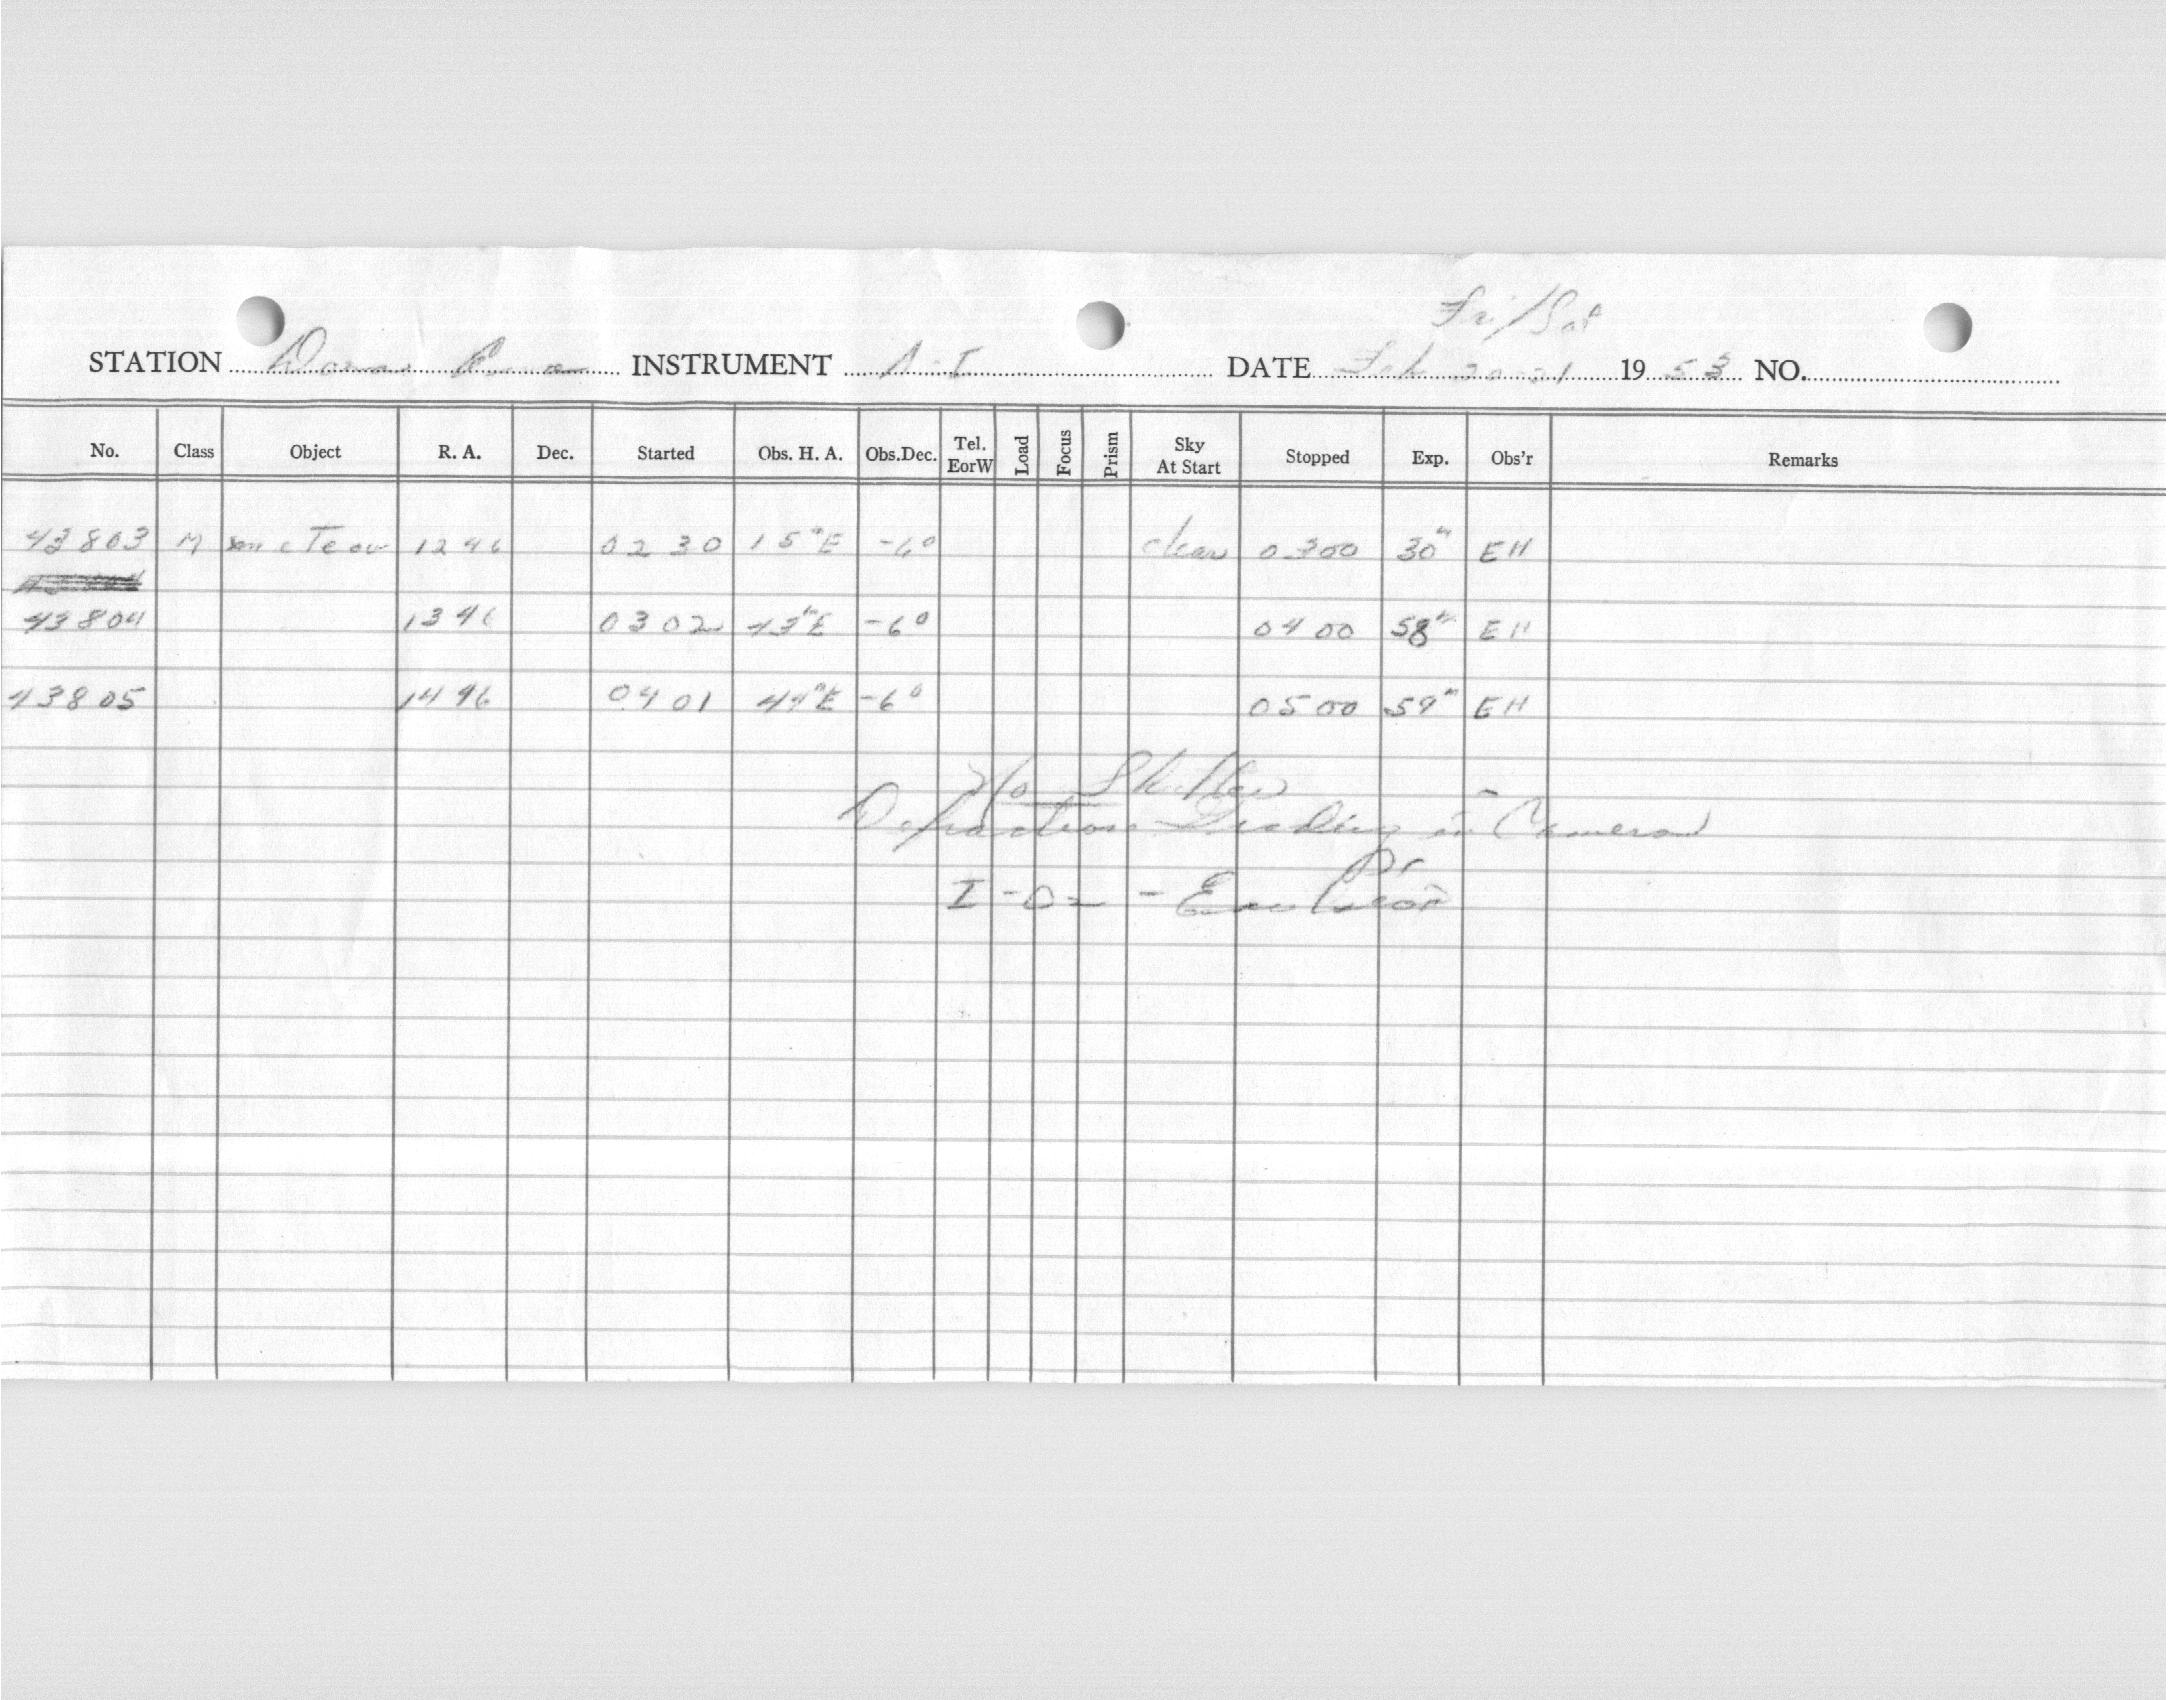 Fri/Sat
STATION Dona Ana INSTRUMENT A-I DATE Feb 20-21 1953 NO.
No. Class Object R. A. Dec. Started Obs. H. A. Obs.Dec. Tel. EorW Load Focus Prism Sky At Start Stopped Exp. Obs'r Remarks
43803 M meteor 1246 0230 15m E -6° clear 0300 30m EH
43804 1346 0302 43m E -6° 0400 58m EH
43805 1446 0401 44m E -6° 0500 59m EH
No
in Camera
I-O